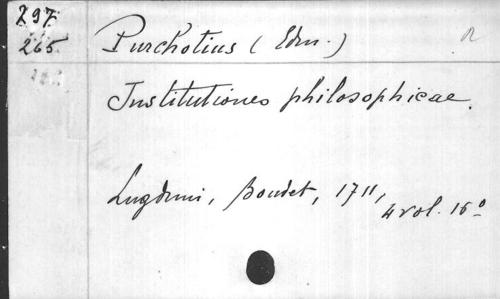 297
265
Purchotius (Edm.)
Institutiones philosophicae.
Lugduni, Boudet, 1711,
4 vol. 16º